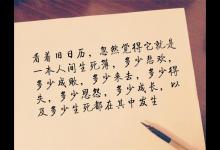 看着旧日历，忽然觉得它就是
一本人间生死簿，多少悲欢，
多少成败，多少来去，多少得
失，多少恩怨，多少成长，以
及多少生死都在其中发生